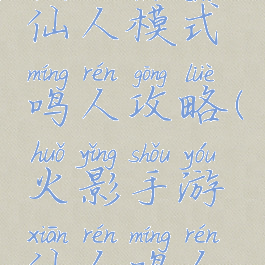 仙人模式
míng rén gōng lüè
鸣人攻略(
huǒ yǐng shǒu yóu
火影手游
xiān rén míng rén